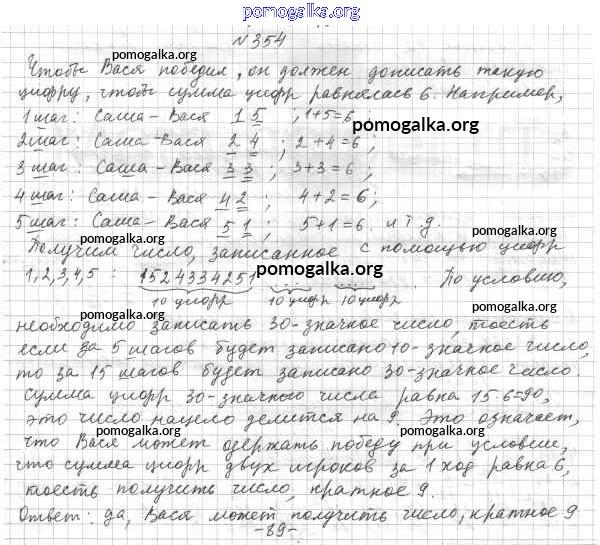 pomogalka.org
№ 354
Чтобы Вася победил, он должен дописать такую
цифру, чтобы сумма цифр равнялась 6. Например,
1 шаг: Саша - Вася 1 5 ; 1+5=6,
2 шаг: Саша - Вася 2 4 ; 2+4=6,
3 шаг: Саша - Вася 3 3 ; 3+3=6;
4 шаг: Саша - Вася 4 2 ; 4+2=6;
5 шаг: Саша - Вася 5 1 ; 5+1=6. и т.д.
Получим число, записанное с помощью цифр
1,2,3,4,5 : 1524334251 ... ... . По условию,
10 цифр 10 цифр 10 цифр
необходимо записать 30-значное число, тоесть
если за 5 шагов будет записано 10-значное число,
то за 15 шагов будет записано 30-значное число.
Сумма цифр 30-значного числа равна 15·6=90,
это число нацело делится на 9. Это означает,
что Вася может одержать победу при условии,
что сумма цифр двух игроков за 1 ход равна 6,
тоесть получить число, кратное 9.
Ответ: да, Вася может получить число, кратное 9
-89-
pomogalka.org
pomogalka.org
pomogalka.org
pomogalka.org
pomogalka.org
pomogalka.org
pomogalka.org
pomogalka.org
pomogalka.org
pomogalka.org
pomogalka.org